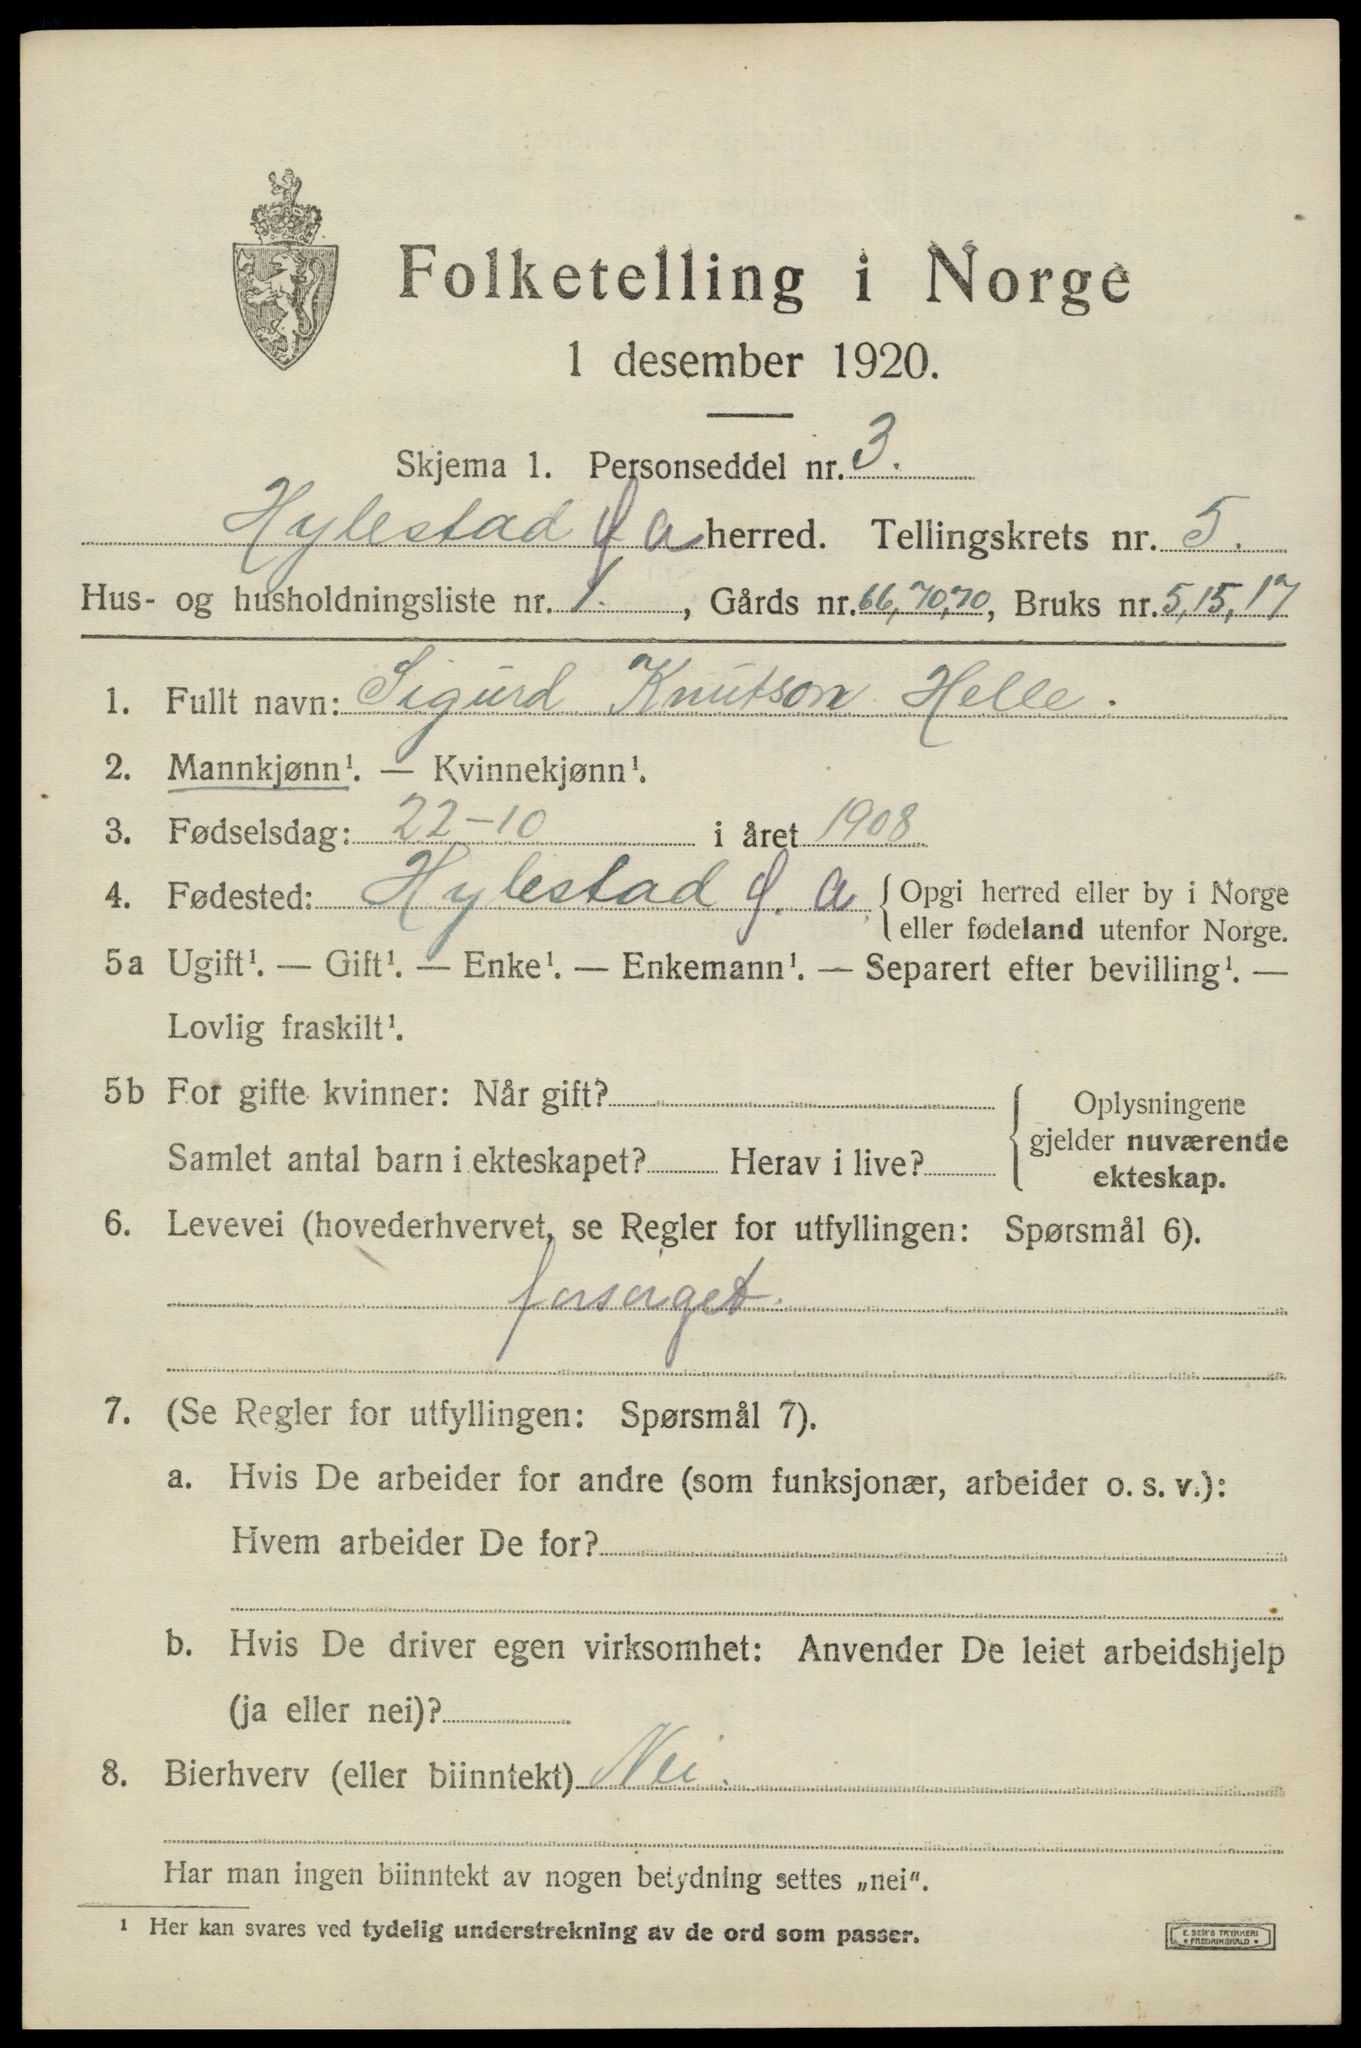 Folketelling i Norge
1 desember 1920.
Skjema 1. Personseddel nr. 3.
Hylestad Ø. a herred. Tellingskrets nr. 5.
Hus- og husholdningsliste nr. 1. , Gårds nr. 66, 70, 70, Bruks nr. 5, 15, 17
1. Fullt navn: Sigurd Knutson Helle.
2. Mannkjønn¹. — Kvinnekjønn¹.
3. Fødselsdag: 22-10 i året 1908
4. Fødested: Hylestad Ø. a. { Opgi herred eller by i Norge
eller fødeland utenfor Norge.
5a Ugift¹. — Gift¹. — Enke¹. — Enkemann¹. — Separert efter bevilling¹. —
Lovlig fraskilt¹.
5b For gifte kvinner: Når gift?
Samlet antal barn i ekteskapet? Herav i live?
Oplysningene
gjelder nuværende
ekteskap.
6. Levevei (hovederhvervet, se Regler for utfyllingen: Spørsmål 6).
forsørget.
7. (Se Regler for utfyllingen: Spørsmål 7).
a. Hvis De arbeider for andre (som funksjonær, arbeider o. s. v.):
Hvem arbeider De for?
b. Hvis De driver egen virksomhet: Anvender De leiet arbeidshjelp
(ja eller nei)?
8. Bierhverv (eller biinntekt) Nei.
Har man ingen biinntekt av nogen betydning settes „nei“.
¹ Her kan svares ved tydelig understrekning av de ord som passer.
E. SEM'S TRYKKERI
FREDRIKSHALD